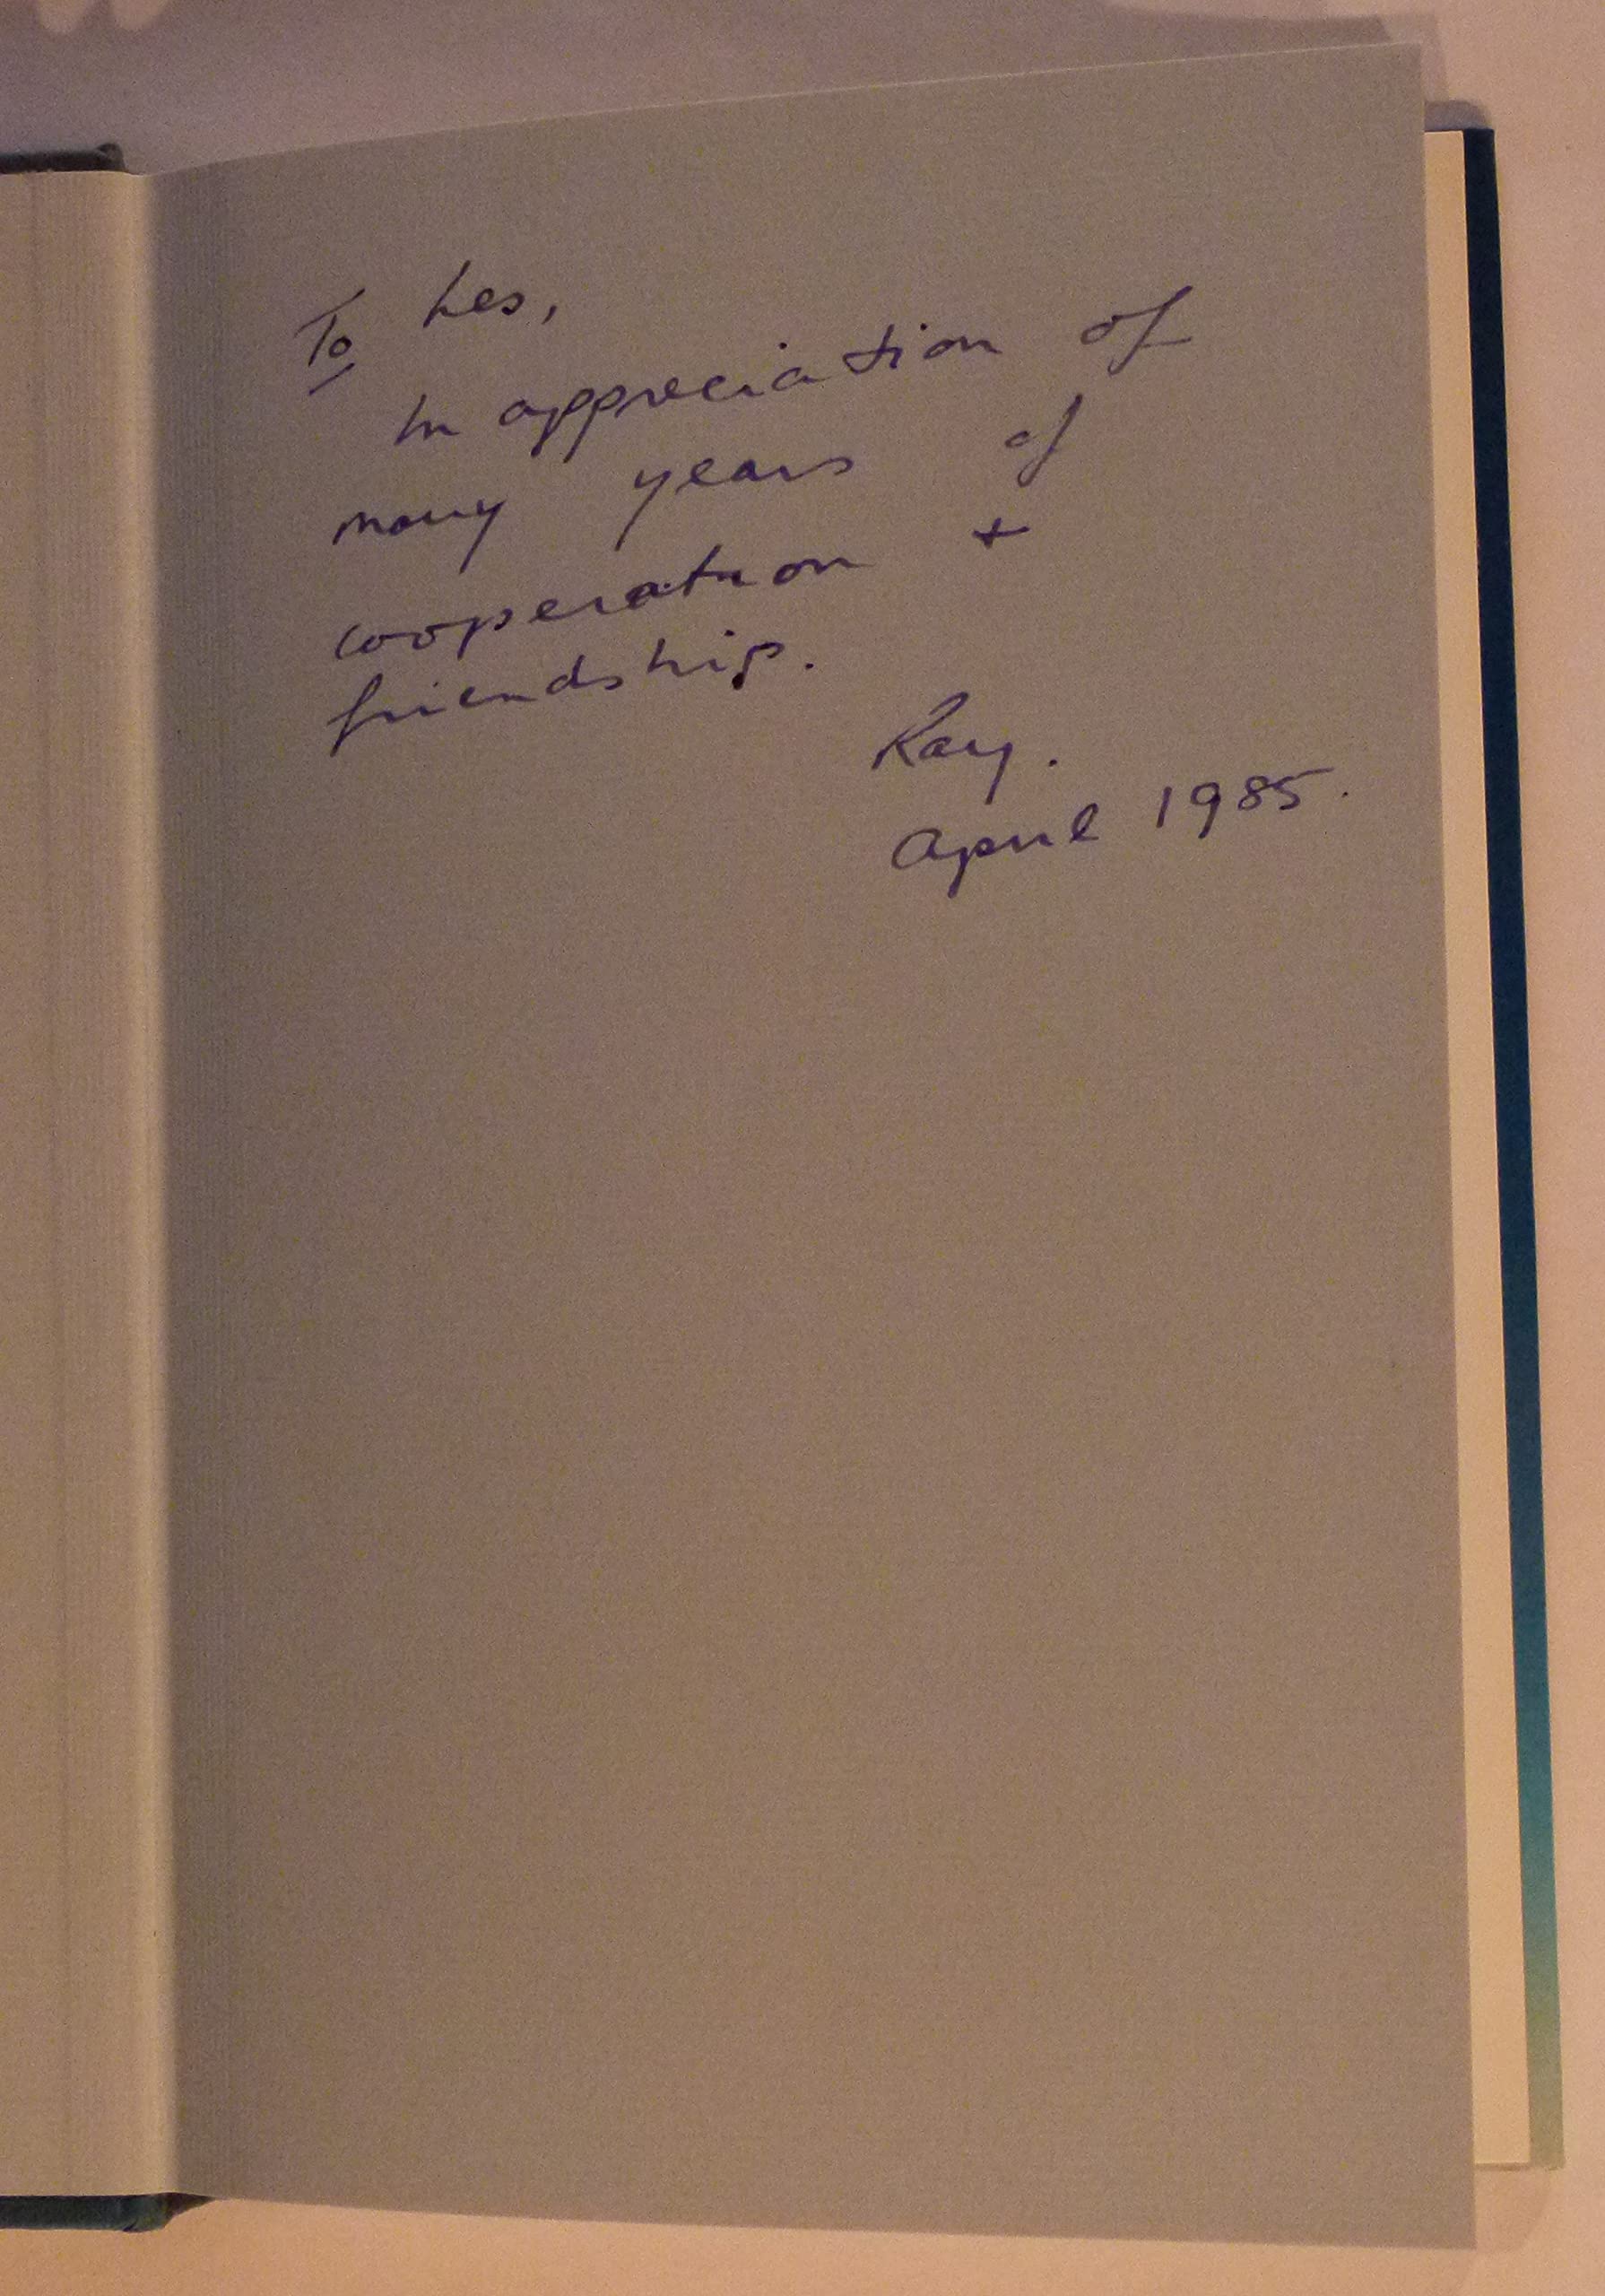 To Les,
In appreciation of
many years of
cooperation +
friendship.
Ray.
April 1985.